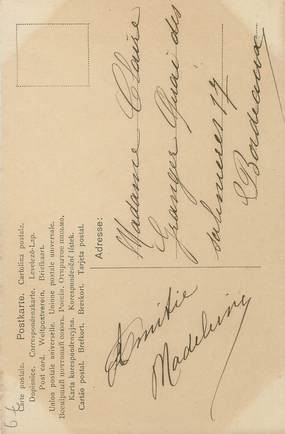 Postkarte.
Carte postale. Cartolina postale.
Dopisnice. Correspondenzkarte. Levelező-Lap.
Post card. Weltpostverein. Briefkaart.
Union postale universelle. Unione postale universale.
Всемірный почтовый союзъ. Россія. Открытое письмо.
Karta korespondencyjna. Korespondenční lístek.
Cartão postal. Brefkort. Brevkort. Tarjeta postal.
Adresse:
Madame Claire
Granger Quai des
17
Bordeaux
Amitié
Madeleine
6 €